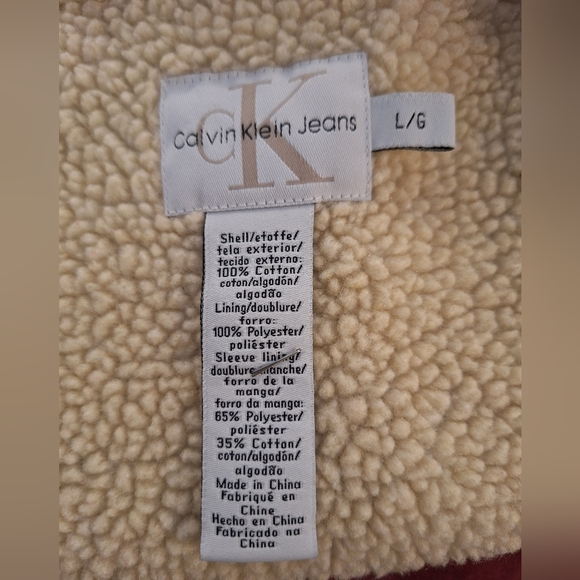 CK
Calvin Klein Jeans
L/G
Shell/etoffe/
tela exterior/
tecido externo:
100% Cotton/
coton/algodón/
algodão
Lining/doublure/
forro:
100% Polyester/
poliéster
Sleeve lining/
doublure manche/
forro de la
manga/
forro da manga:
65% Polyester/
poliéster
35% Cotton/
coton/algodón/
algodão
Made in China
Fabriqué en
Chine
Hecho en China
Fabricado na
China